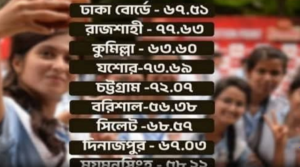 ঢাকা বোর্ডে - ৬৭.৫১
রাজশাহী - ৭৭.৬৩
কুমিল্লা - ৬৩.৬০
যশোর-৭৩.৬৯
চট্টগ্রাম -৭২.০৭
বরিশাল-৫৬.৩৮
সিলেট -৬৮.৫৭
দিনাজপুর - ৬৭.০৩
ময়মনসিংহ - ৫৮.২২